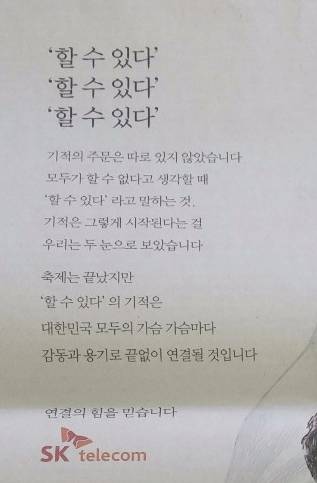 ‘할 수 있다’
‘할 수 있다’
‘할 수 있다’
기적의 주문은 따로 있지 않았습니다
모두가 할 수 없다고 생각할 때
‘할 수 있다’ 라고 말하는 것.
기적은 그렇게 시작된다는 걸
우리는 두 눈으로 보았습니다
축제는 끝났지만
‘할 수 있다’ 의 기적은
대한민국 모두의 가슴 가슴마다
감동과 용기로 끝없이 연결될 것입니다
연결의 힘을 믿습니다
SK telecom